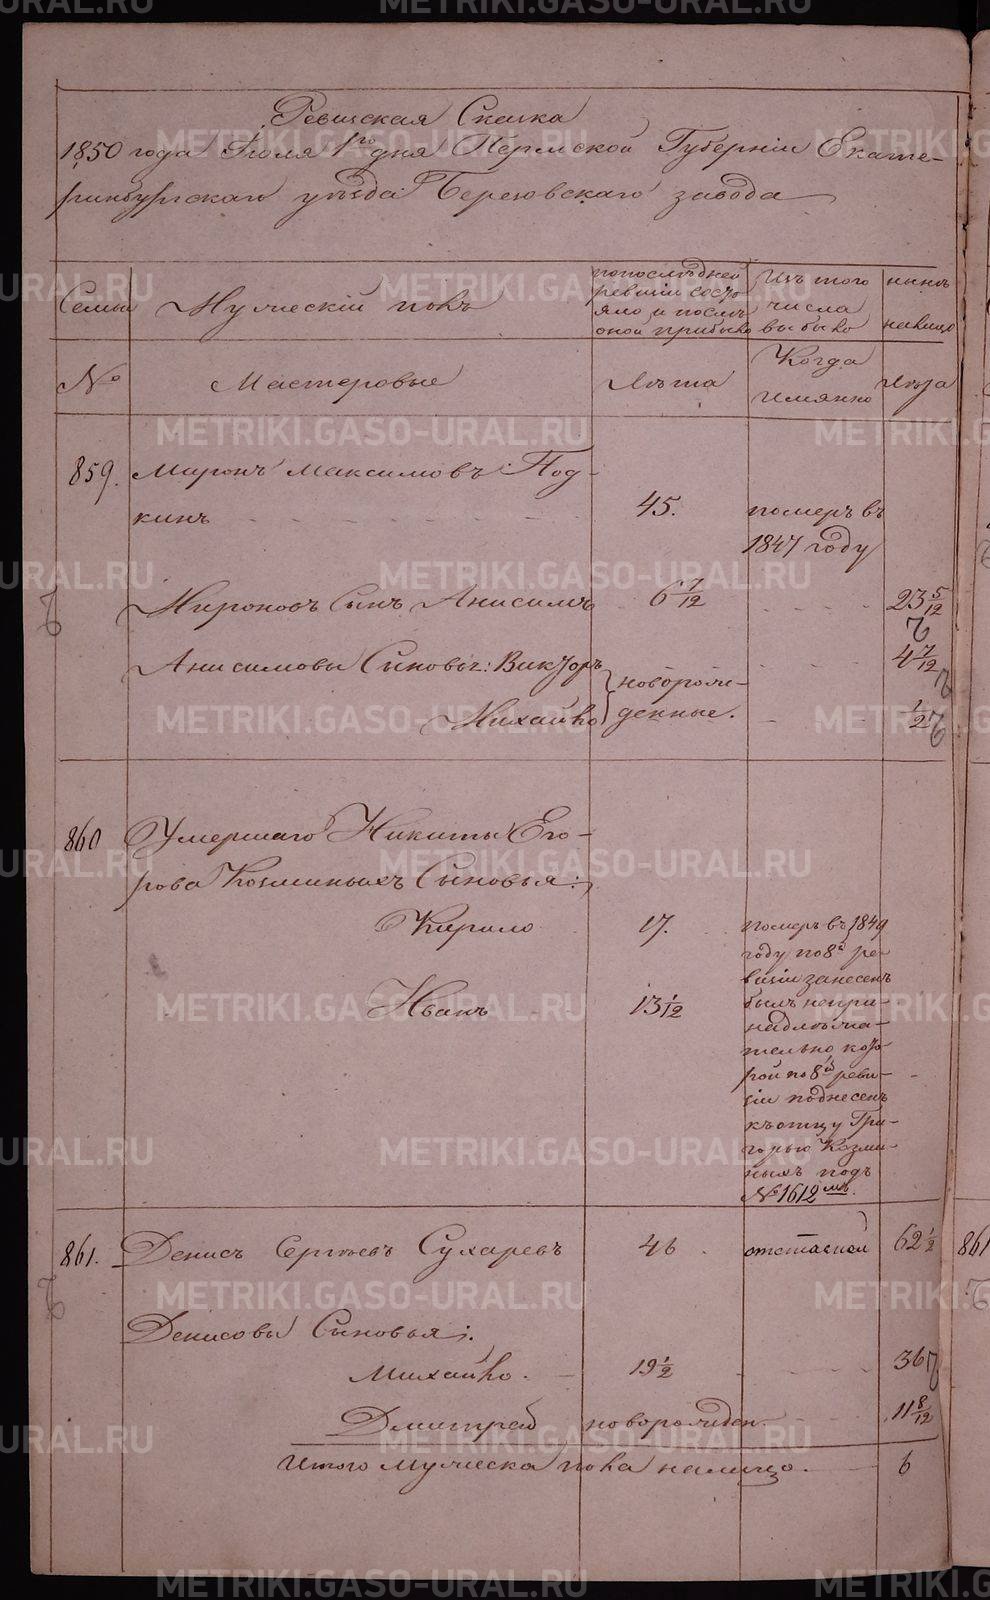 Ревизская Сказка
1850 года Июля 1го дня Пермской Губернiи Екате-
ринбургскаго уѣзда Березовскаго завода
Семьи
Мужескiй полъ
по послѣдней
ревизiи состо
яло и послѣ
оной прибыло
Изъ того
числа
выбыло
нынѣ
налицо
№
Мастеровые
Лѣта
Когда
имянно
Лѣта
859.
Миронъ Максимовъ Под-
кинъ
45.
померъ въ
1847 году
Мироновъ Сынъ Анисимъ
6 7/12
23 5/12
Анисимовы Сыновья: Викторъ
новорож-
4 7/12
Михайло
денные.
1/2
860
Умершаго Никиты Его-
рова Козминыхъ Сыновья:
Кирило
17.
померъ въ 1849
году по 8й ре-
визiи занесенъ
Иванъ
13 1/12
былъ непри-
надлѣжа-
тельно кото
рой по 8й реви-
зiи поднесенъ
къ отцу Гри-
горью Козми-
ныхъ подъ
№ 1612мъ.
861.
Денисъ Сергѣевъ Сухаревъ
46
отставной
62 1/2
861
Денисовы Сыновья:
Михайло.
19 1/2
36
Дмитрей новорожден.
11 8/12
Итого мужеска пола налицо.
6
METRIKI.GASO-URAL.RU